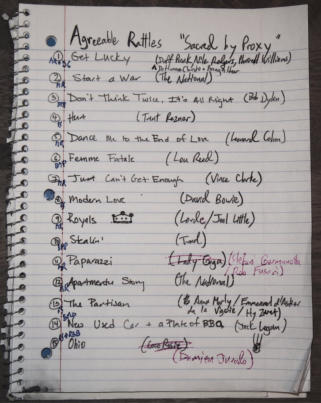 Agreeable Rattles "Sacred by Proxy"
① Get Lucky (Daft Punk, Nile Rodgers, Pharrell Williams)
② Start a War (The National)
③ Don't Think Twice, It's All Right (Bob Dylan)
④ Hurt (Trent Reznor)
⑤ Dance Me to the End of Love (Leonard Cohen)
⑥ Femme Fatale (Lou Reed)
⑦ Just Can't Get Enough (Vince Clarke)
⑧ Modern Love (David Bowie)
⑨ Royals (Lorde/Joel Little)
⑩ Stealin' (Trad)
⑪ Paparazzi (Lady Gaga) (Stefani Germanotta / Rob Fusari)
⑫ Apartment Story (The National)
⑬ The Partisan (Anna Marly / Emmanuel d'Astier de la Vigerie / Hy Zaret)
⑭ New Used Car + a Plate of BBQ (Jack Logan)
⑮ Ohio
(Damien Jurado)